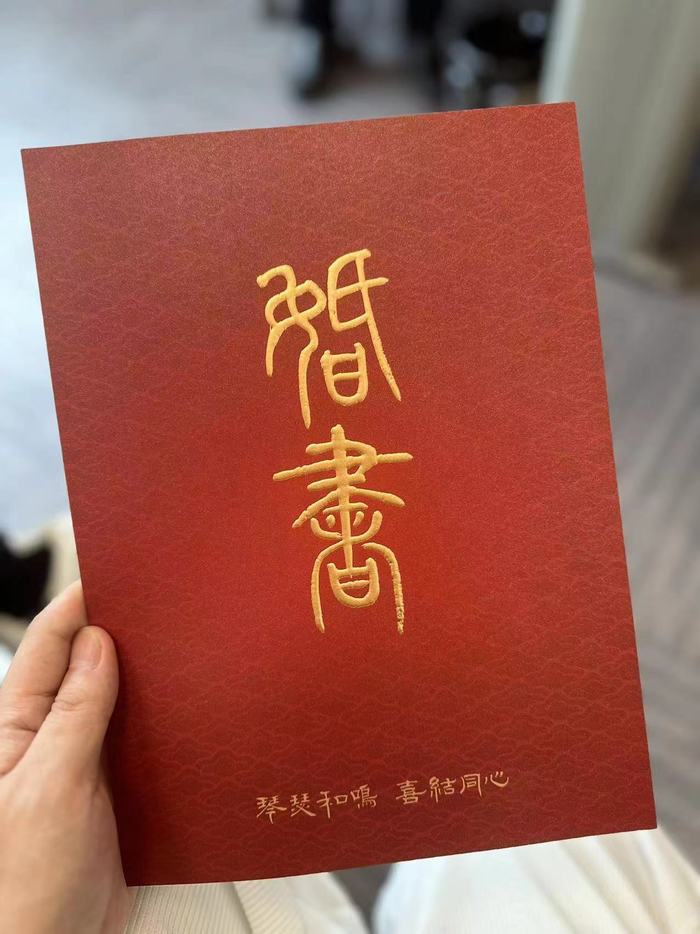 婚書
琴瑟和鳴 喜結同心